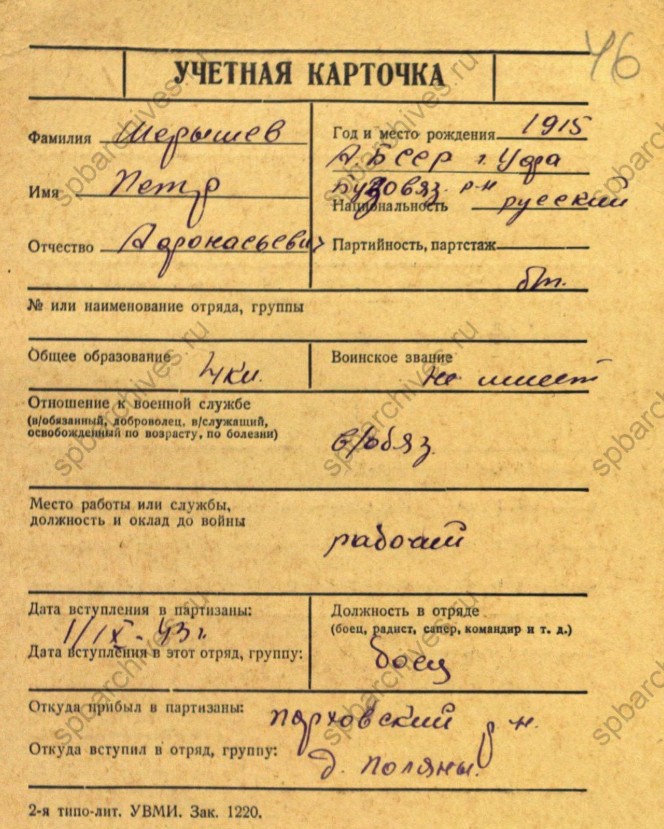 46
УЧЕТНАЯ КАРТОЧКА
Фамилия Шерышев
Имя Петр
Отчество Афонасьевич
Год и место рождения 1915
АБССР г. Уфа
Бузовяз. р-н
Национальность русский
Партийность, партстаж
бп.
№ или наименование отряда, группы
Общее образование 4 кл.
Воинское звание не имеет
Отношение к военной службе
(в/обязанный, доброволец, в/служащий,
освобожденный по возрасту, по болезни)
в/обяз.
Место работы или службы,
должность и оклад до войны
рабочий
Дата вступления в партизаны:
1/IX-43 г.
Дата вступления в этот отряд, группу:
Должность в отряде
(боец, радист, сапер, командир и т. д.)
боец
Откуда прибыл в партизаны: Порховский р-н.
Откуда вступил в отряд, группу: д. Поляны.
2-я типо-лит. УВМИ. Зак. 1220.
spbarchives.ru
spbarchives.ru
spbarchives.ru
spbarchives.ru
spbarchives.ru
spbarchives.ru